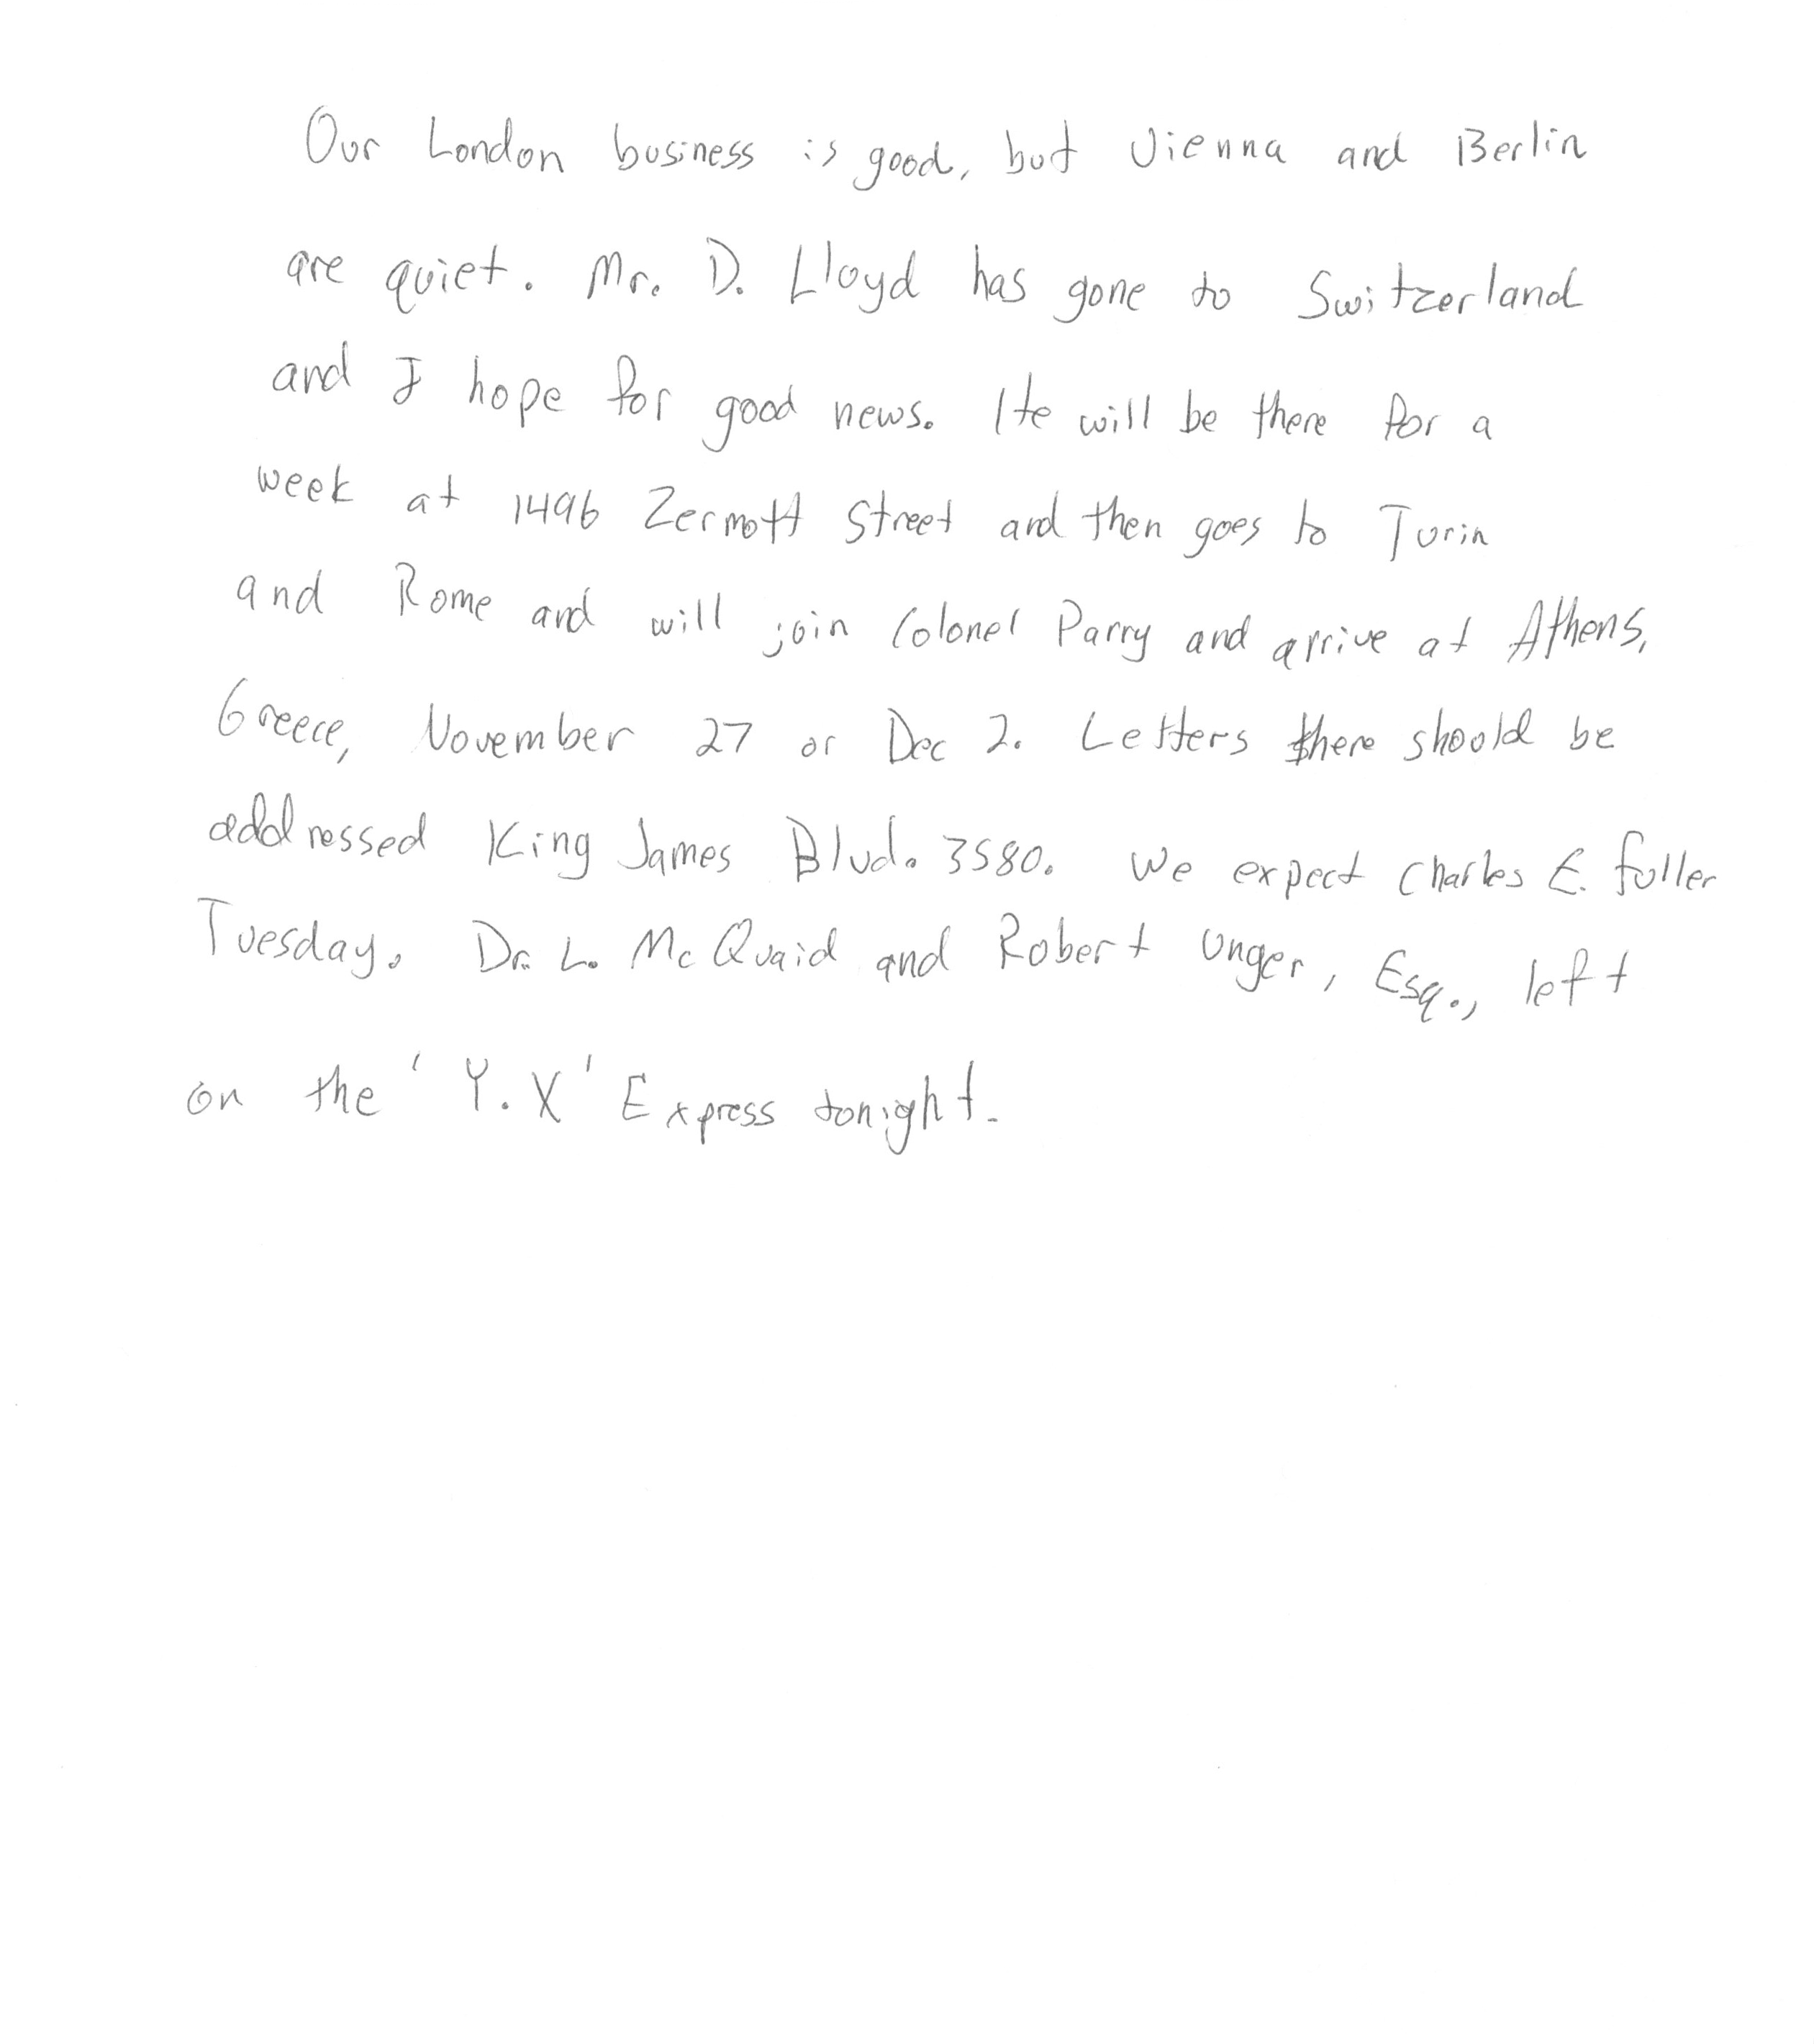 Our London business is good, but Vienna and Berlin
are quiet. Mr. D. Lloyd has gone to Switzerland
and I hope for good news. He will be there for a
week at 1496 Zermott Street and then goes to Turin
and Rome and will join Colonel Parry and arrive at Athens,
Greece, November 27 or Dec 2. Letters there should be
addressed King James Blvd. 3580. We expect Charles E. Fuller
Tuesday. Dr. L. McQuaid and Robert Unger, Esq., left
on the 'Y.X' Express tonight.